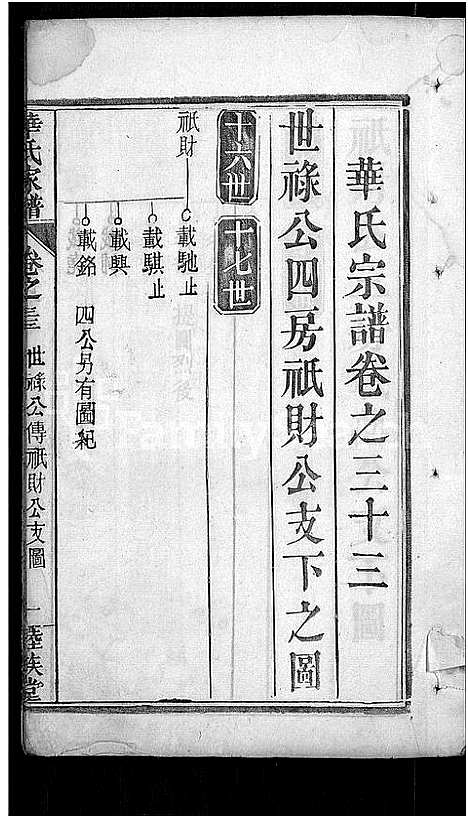 華氏宗譜卷之三十三
世祿公四房祇財公支下之圖
十六世
十七世
祇財
載馳止
載騏止
載興
載銘
四公另有圖紀
華氏家譜
卷之三
世祿公傳祇財公支圖
一
睦族堂